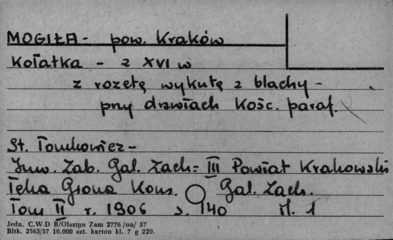 MOGIŁA - pow. Kraków
Kołatka - z XVI w
z rozetę wykutę z blachy -
przy drzwiach Kośc. paraf.
St. Tomkowicz -
Inw. Zab. Gal. Zach: III Powiat Krakowski
Teka Grona Kons. Gal. Zach.
Tom II r. 1906 s. 140 il. 1
Jedn. C.W.D D/Olsztyn Zam 2776/on/ 57
Bltk. 2563/57 10.000 szt. karton kl. 7 g 220.